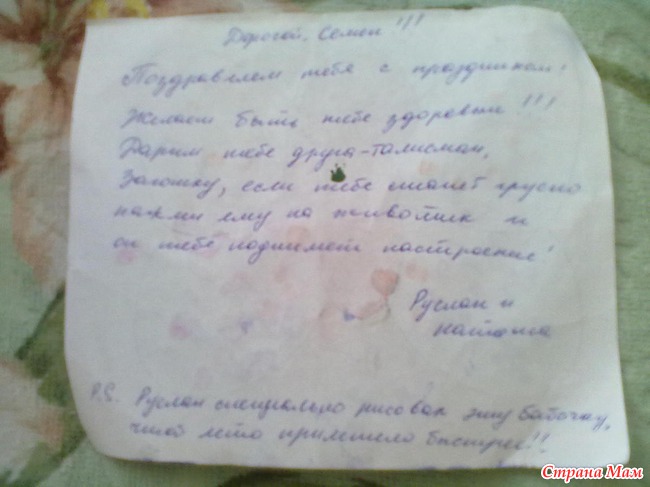 Дорогой Семён!!!
Поздравляем тебя с праздником!
Желаем быть тебе здоровым!!!
Дарим тебе друга-талисман,
если тебе станет грустно
нажми ему на животик и
он тебе поднимет настроение!
Руслан и
Наташа
P.S. Руслан специально рисовал эту бабочку,
чтоб лето прилетело быстрее!!
Страна Мам